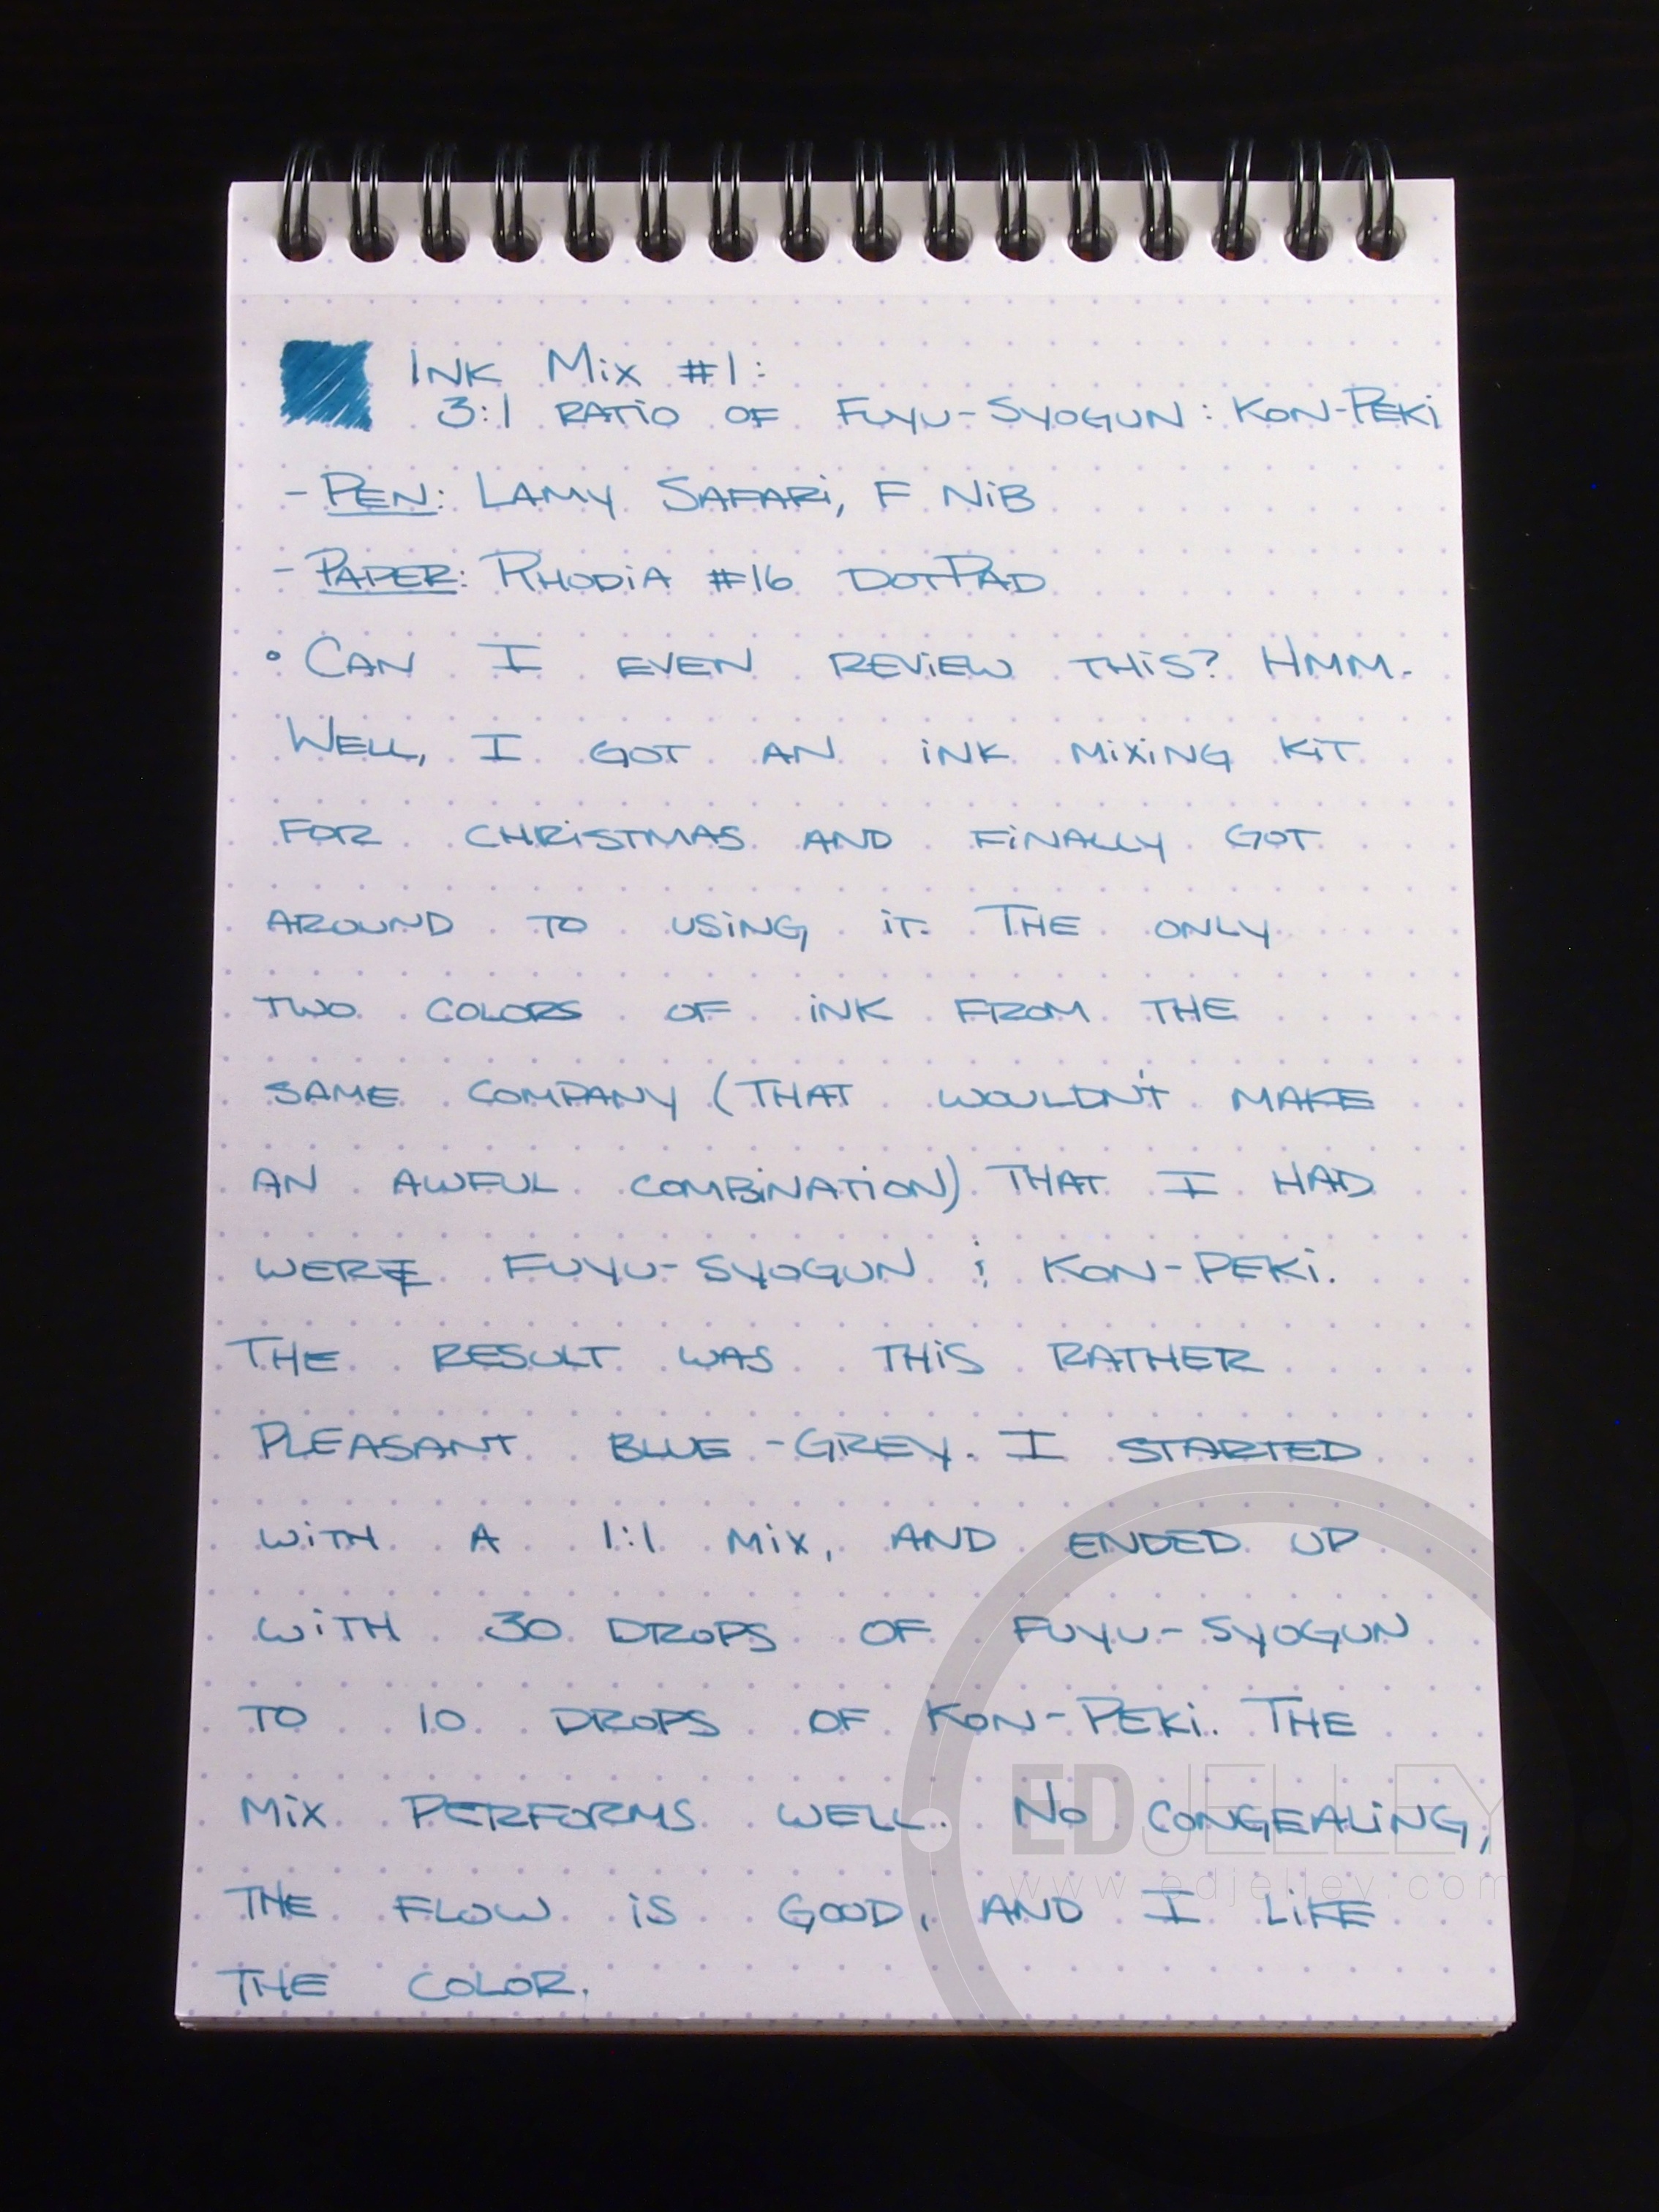 INK MIX #1:
3:1 RATIO OF FUYU-SYOGUN : KON-PEKI
- PEN: LAMY SAFARI, F NIB
- PAPER: RHODIA #16 DOTPAD
• CAN I EVEN REVIEW THIS? HMM.
WELL, I GOT AN INK MIXING KIT
FOR CHRISTMAS AND FINALLY GOT
AROUND TO USING IT. THE ONLY
TWO COLORS OF INK FROM THE
SAME COMPANY (THAT WOULDN'T MAKE
AN AWFUL COMBINATION) THAT I HAD
WERE FUYU-SYOGUN & KON-PEKI.
THE RESULT WAS THIS RATHER
PLEASANT BLUE-GREY. I STARTED
WITH A 1:1 MIX, AND ENDED UP
WITH 30 DROPS OF FUYU-SYOGUN
TO 10 DROPS OF KON-PEKI. THE
MIX PERFORMS WELL. NO CONGEALING,
THE FLOW IS GOOD, AND I LIKE
THE COLOR.
EDJELLEY
www.edjelley.com